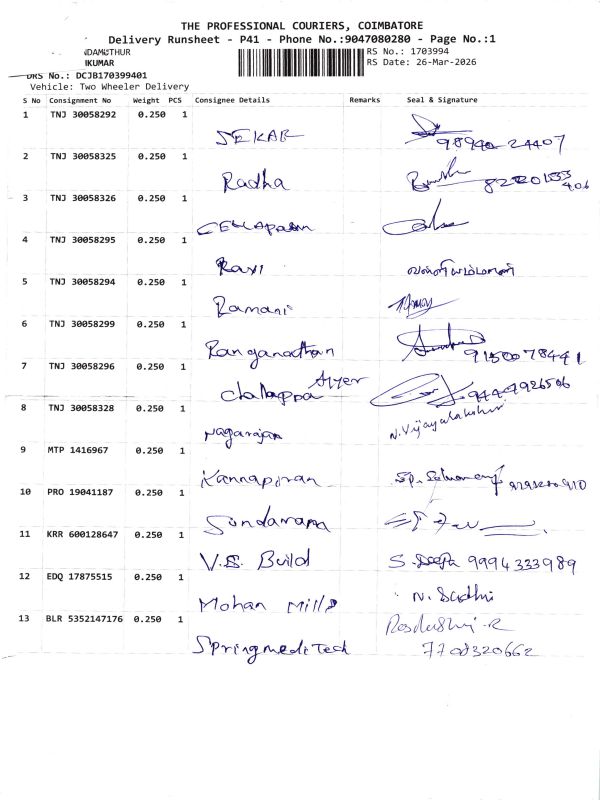 THE PROFESSIONAL COURIERS, COIMBATORE
Delivery Runsheet - P41 - Phone No.:9047080280 - Page No.:1
NDAMUTHUR RS No.: 1703994
IKUMAR RS Date: 26-Mar-2026
DRS No.: DCJB170399401
Vehicle: Two Wheeler Delivery
S No Consignment No Weight PCS Consignee Details Remarks Seal & Signature
1 TNJ 30058292 0.250 1
SEKAR 98940-24407
2 TNJ 30058325 0.250 1
Radha
3 TNJ 30058326 0.250 1
4 TNJ 30058295 0.250 1
Ravi
5 TNJ 30058294 0.250 1
Ramani
6 TNJ 30058299 0.250 1
Ranganathan 9150078441
7 TNJ 30058296 0.250 1
Challappa Aiyer
8 TNJ 30058328 0.250 1
Nagarajan N.Vijayalakshmi
9 MTP 1416967 0.250 1
Kannapiran
10 PRO 19041187 0.250 1
Sundaram
11 KRR 600128647 0.250 1
V.S. Build S. Deepa 9994333989
12 EDQ 17875515 0.250 1
Mohan Mills N. Sudhi
13 BLR 5352147176 0.250 1
Springmeditech 7708320662